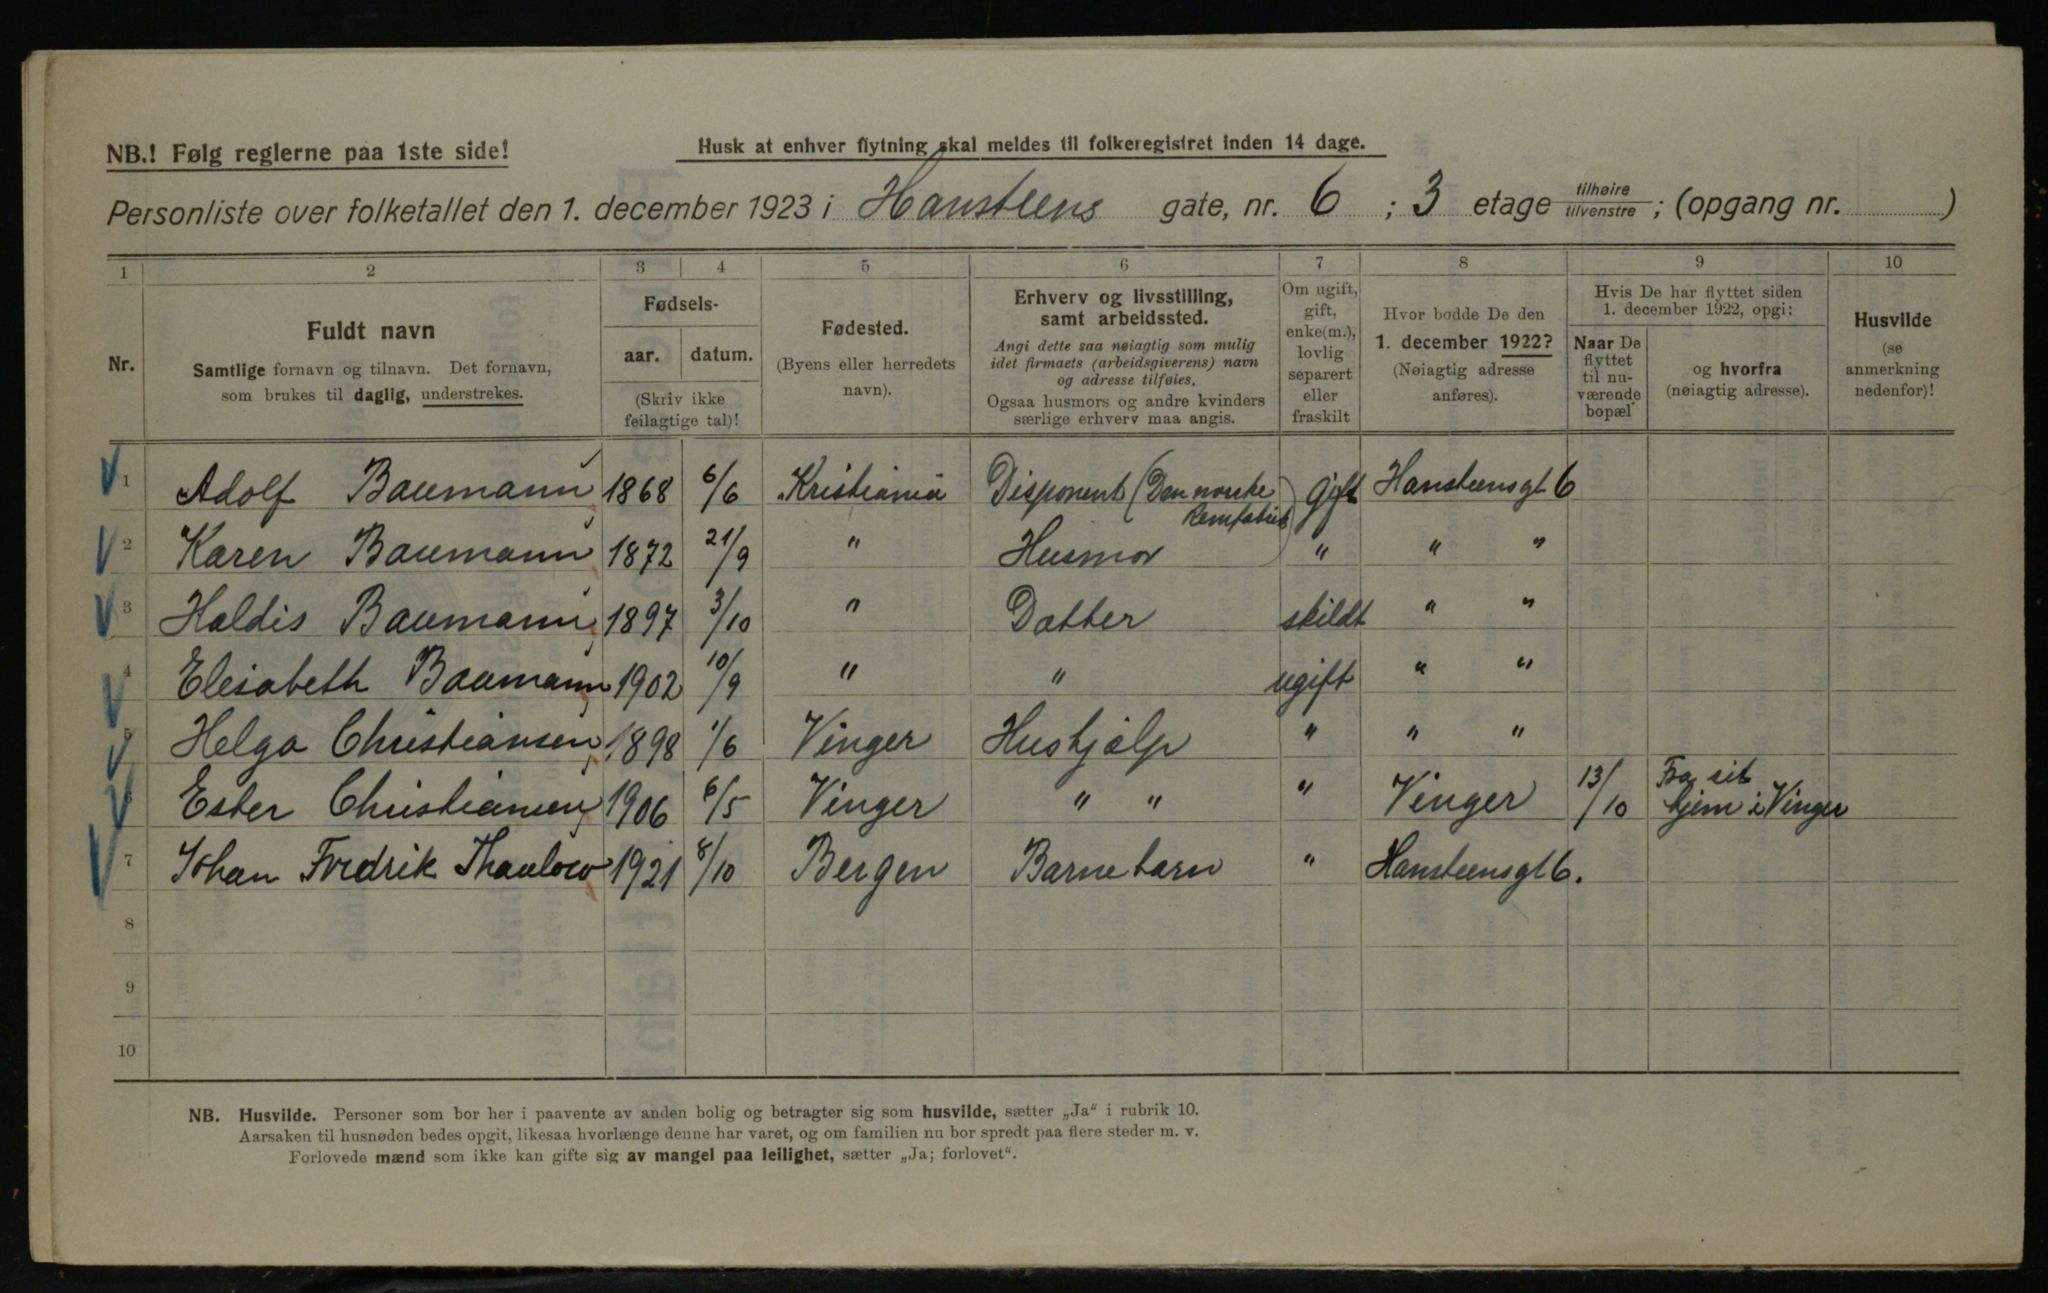 NB.! Følg reglerne paa 1ste side!
Husk at enhver flytning skal meldes til folkeregistret inden 14 dage.
Personliste over folketallet den 1. december 1923 i Hansteens gate, nr. 6 ; 3 etage tilhøire tilvenstre ; (opgang nr. )
1 2 3 4 5 6 7 8 9 10
Nr.
Fuldt navn
Samtlige fornavn og tilnavn. Det fornavn,
som brukes til daglig, understrekes.
Fødsels-
aar. datum.
(Skriv ikke
feilagtige tal)!
Fødested.
(Byens eller herredets
navn).
Erhverv og livsstilling,
samt arbeidssted.
Angi dette saa nøiagtig som mulig
idet firmaets (arbeidsgiverens) navn
og adresse tilføies.
Ogsaa husmors og andre kvinders
særlige erhverv maa angis.
Om ugift,
gift,
enke(m.),
lovlig
separert
eller
fraskilt
Hvor bodde De den
1. december 1922?
(Nøiagtig adresse
anføres).
Hvis De har flyttet siden
1. december 1922, opgi:
Naar De
flyttet
til nu-
værende
bopæl
og hvorfra
(nøiagtig adresse).
Husvilde
(se
anmerkning
nedenfor)!
1 Adolf Baumann 1868 6/6 Kristiania Disponent (Den norske Remfabrik) gift Hansteensgt 6
2 Karen Baumann 1872 21/9 " Husmor " " "
3 Haldis Baumann 1897 3/10 " Datter skildt " "
4 Elisabeth Baumann 1902 10/9 " " ugift " "
5 Helga Christiansen 1898 1/6 Vinger Hushjælp " " "
6 Ester Christiansen 1906 6/5 Vinger " " " Vinger 13/10 Fra sit hjem i Vinger
7 Johan Fredrik Thaulow 1921 8/10 Bergen Barnebarn " Hansteensgt 6.
8
9
10
NB. Husvilde. Personer som bor her i paavente av anden bolig og betragter sig som husvilde, sætter „Ja“ i rubrik 10.
Aarsaken til husnøden bedes opgit, likesaa hvorlænge denne har varet, og om familien nu bor spredt paa flere steder m. v.
Forlovede mænd som ikke kan gifte sig av mangel paa leilighet, sætter „Ja; forlovet“.